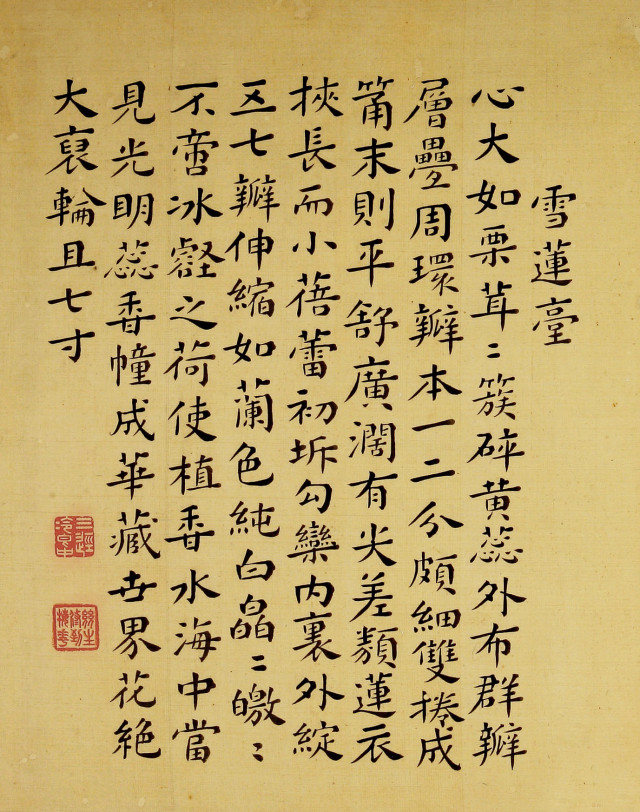 雪蓮臺
心大如栗茸〻簇碎黄蕊外布群瓣
層疊周環瓣本一二分頗細雙捲成
筩末則平舒廣濶有尖差類蓮衣
挾長而小蓓蕾初坼勾欒内裏外綻
五七瓣伸縮如蘭色純白皛〻皦〻
不啻冰壑之荷使植香水海中當
見光明蕊香幢成華藏世界花絶
大裒輪且七寸